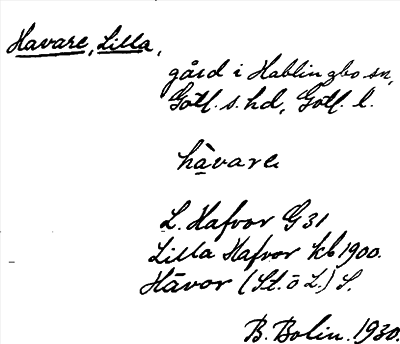 Havare, Lilla,
gård i Hablingbo sn,
Gotl. s. hd, Gotl. l.
hàvare
L. Hafvor G 31
Lilla Hafvor kb 1900.
Hāvor (St. o L.) S.
B. Bolin. 1930.